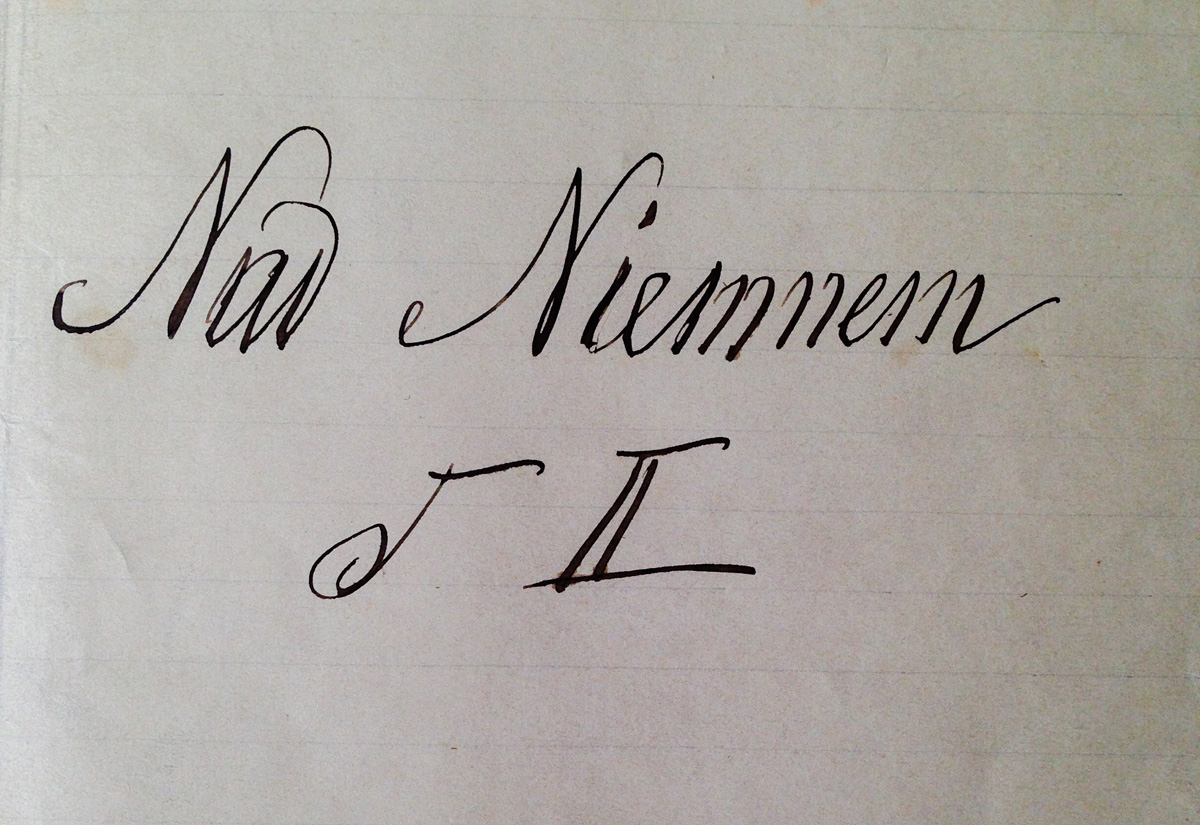 Nad Niemnem
T II